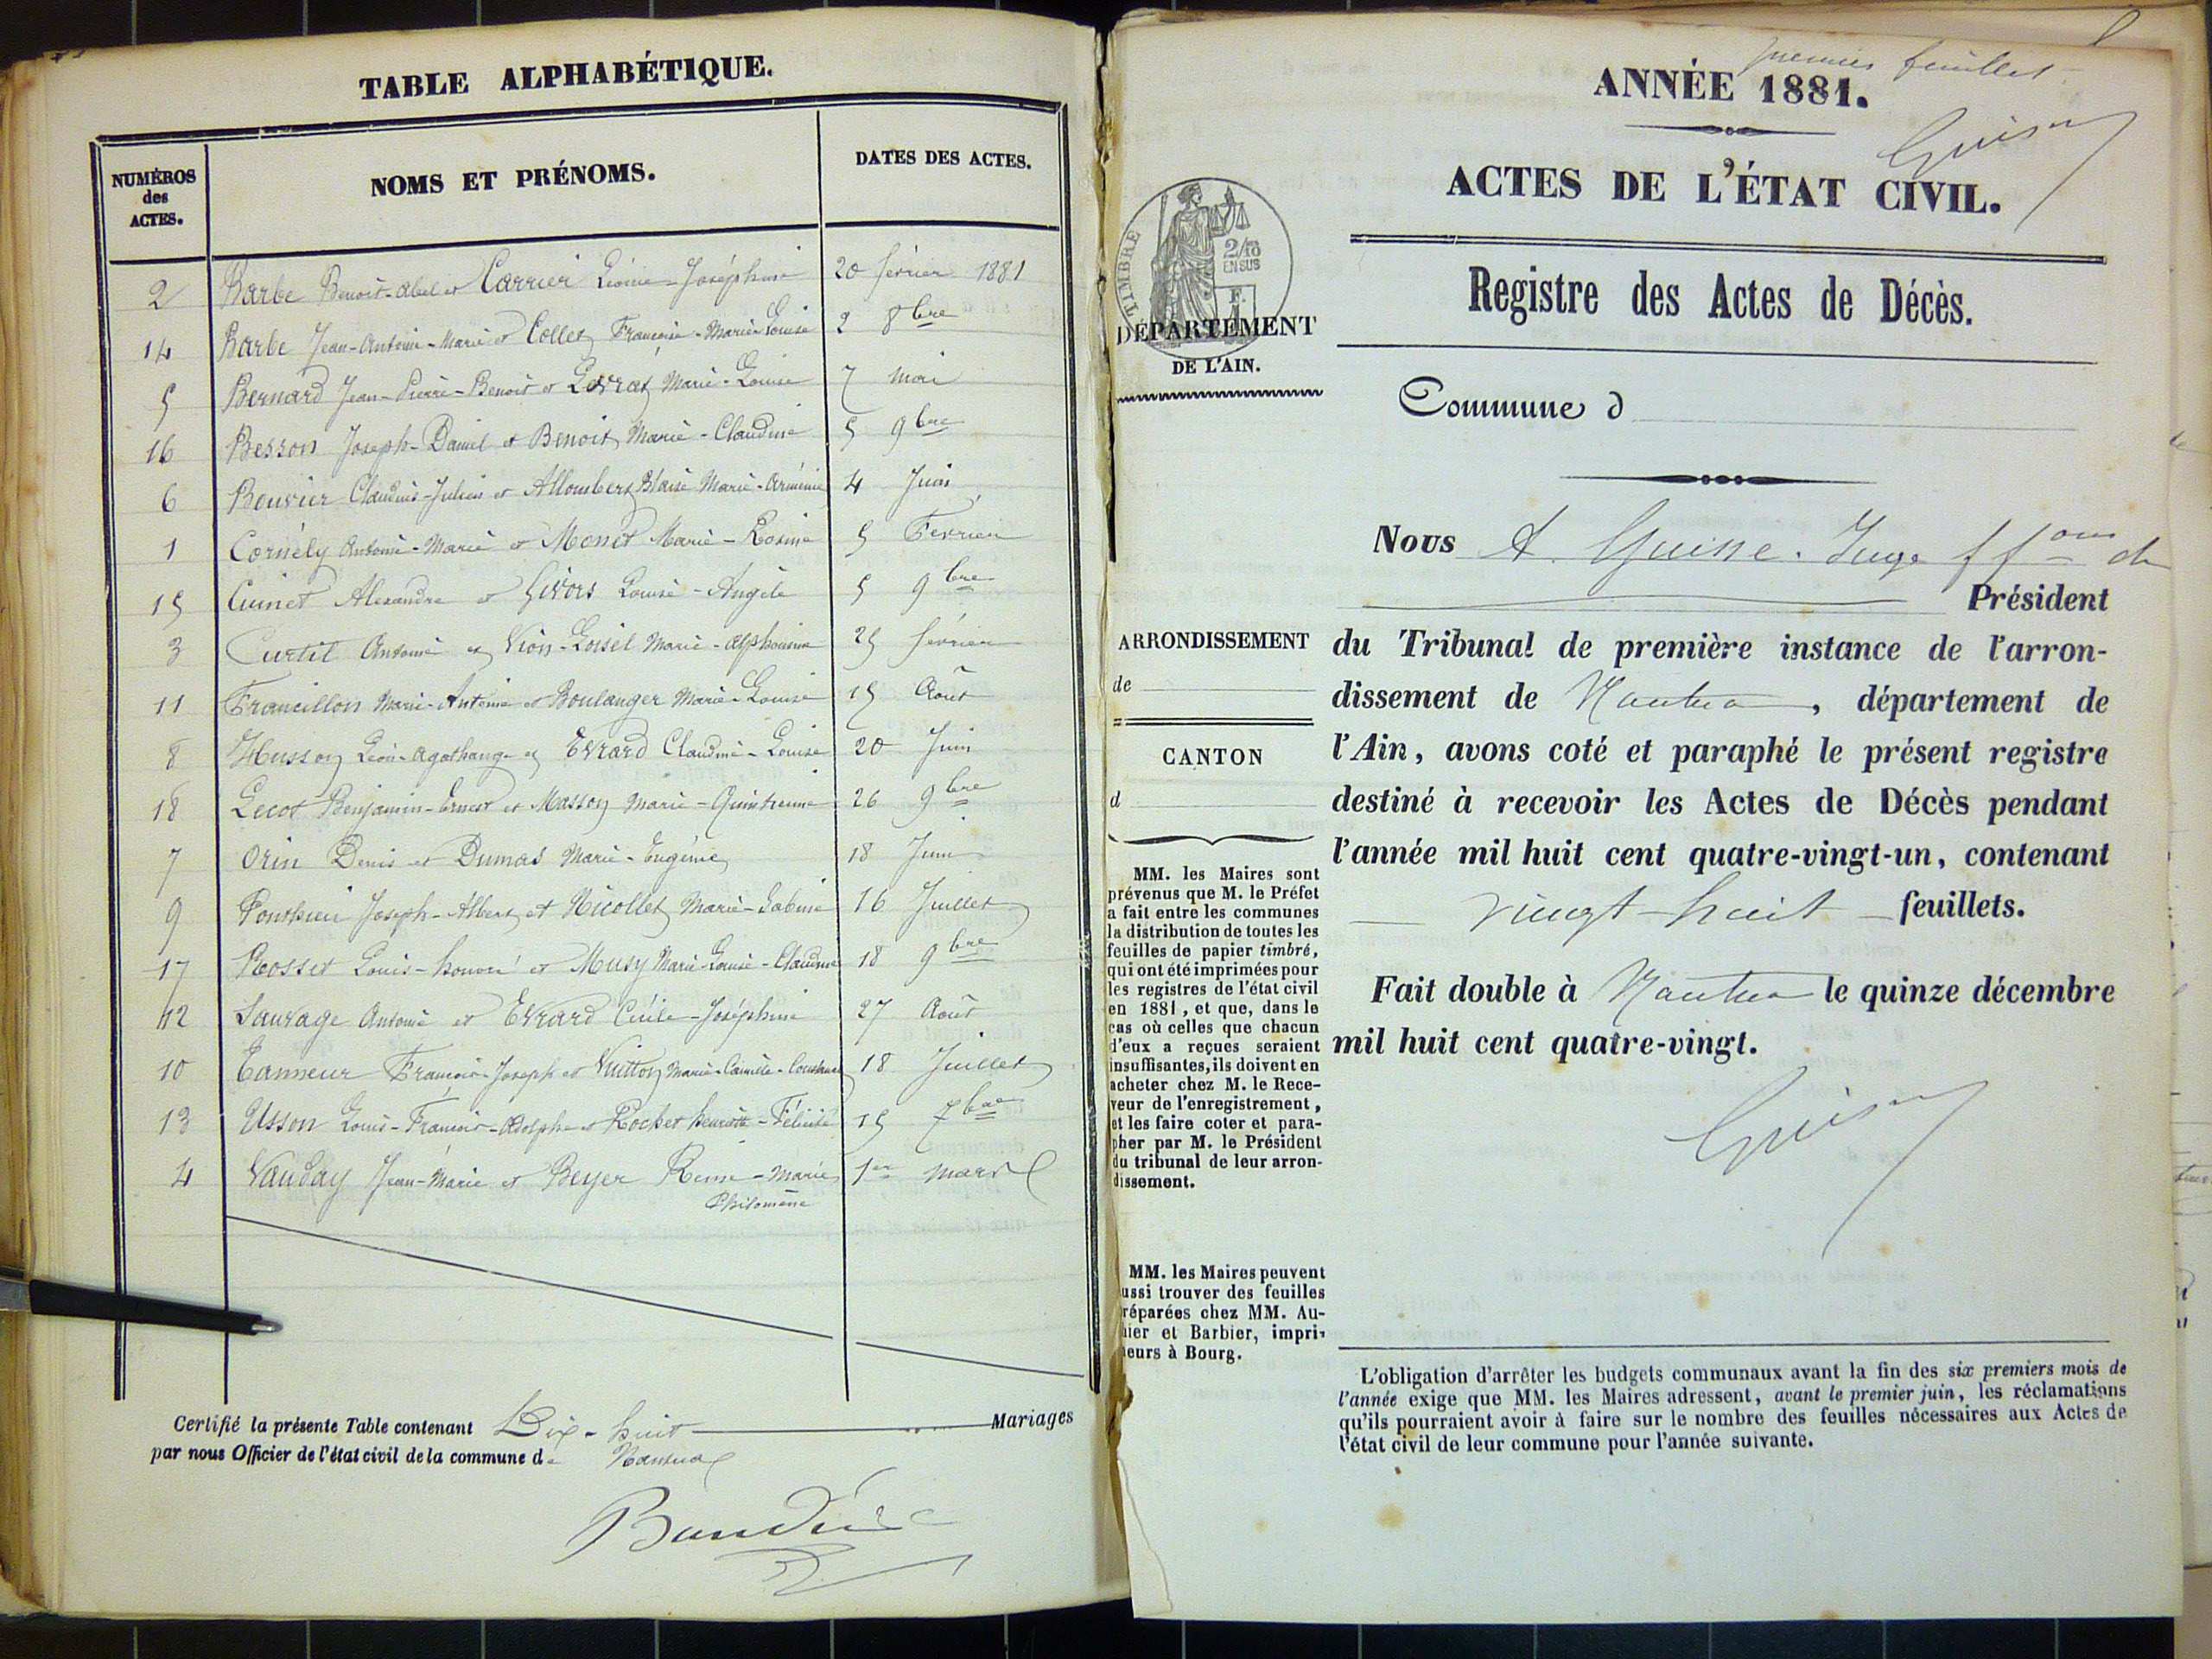 TABLE ALPHABÉTIQUE.
NUMÉROS
des
ACTES.
NOMS ET PRÉNOMS.
DATES DES ACTES.
2 Barbe Benoit-Abel et Carrier Léonie-Joséphine 20 février 1881
14 Barbe Jean-Antoine-Marie et Collet Françoise-Marie-Louise 2 8bre
5 Bernard Jean-Pierre-Benoit et Levrat Marie-Louise 7 Mai
16 Besson Joseph-Daniel et Benoit Marie-Claudine 5 9bre
6 Bouvier Claudius-Julien et Allombert Blaise Marie-Arménie 4 Juin
1 Cornély Antoine-Marie et Monet Marie-Rosine 5 Fevrier
15 Cuinet Alexandre et Givors Louise-Angèle 5 9bre
3 Curtil Antoine et Vion-Loisel Marie-Alphonsine 25 février
11 Francillon Marie-Antoine et Boulanger Marie-Louise 15 Août
8 Husson Léon-Agathange et Evrard Claudine-Louise 20 Juin
18 Lecot Benjamin-Ernest et Masson Marie- 26 9bre
7 Orin Denis et Dumas Marie-Eugénie 18 Juin
9 Ponthieu Joseph-Albert et Nicollet Marie-Sabine 16 Juillet
17 Rosset Louis-honoré et Musy Marie-Louise-Claudine 18 9bre
12 Sauvage Antoine et Evrard Cécile-Joséphine 27 Août
10 Tanneur François-Joseph et Vuitton Marie-Camille-Constance 18 Juillet
13 Usson Louis-François-Adolphe et Rochet henriette-Félicité 15 7bre
4 Vauday Jean-Marie et Beyer Reine-Marie 1er mars
Philomène
Certifié la présente Table contenant Dix-huit Mariages
par nous Officier de l'état civil de la commune de Nantua
premier feuillet
ANNÉE 1881.
ACTES DE L'ÉTAT CIVIL.
Registre des Actes de Décès.
TIMBRE
2/10
EN SUS
DÉPARTEMENT
DE L'AIN.
Commune d
Nous A. Guisne. Juge ffons de
Président
ARRONDISSEMENT
de
CANTON
d
du Tribunal de première instance de l'arron-
dissement de Nantua, département de
l'Ain, avons coté et paraphé le présent registre
destiné à recevoir les Actes de Décès pendant
l'année mil huit cent quatre-vingt-un, contenant
vingt-huit feuillets.
Fait double à Nantua le quinze décembre
mil huit cent quatre-vingt.
MM. les Maires sont
prévenus que M. le Préfet
a fait entre les communes
la distribution de toutes les
feuilles de papier timbré,
qui ont été imprimées pour
les registres de l'état civil
en 1881, et que, dans le
cas où celles que chacun
d'eux a reçues seraient
insuffisantes, ils doivent en
acheter chez M. le Rece-
veur de l'enregistrement,
et les faire coter et para-
pher par M. le Président
du tribunal de leur arron-
dissement.
MM. les Maires peuvent
ussi trouver des feuilles
réparées chez MM. Au-
ier et Barbier, impri-
eurs à Bourg.
L'obligation d'arrêter les budgets communaux avant la fin des six premiers mois de
l'année exige que MM. les Maires adressent, avant le premier juin, les réclamations
qu'ils pourraient avoir à faire sur le nombre des feuilles nécessaires aux Actes de
l'état civil de leur commune pour l'année suivante.